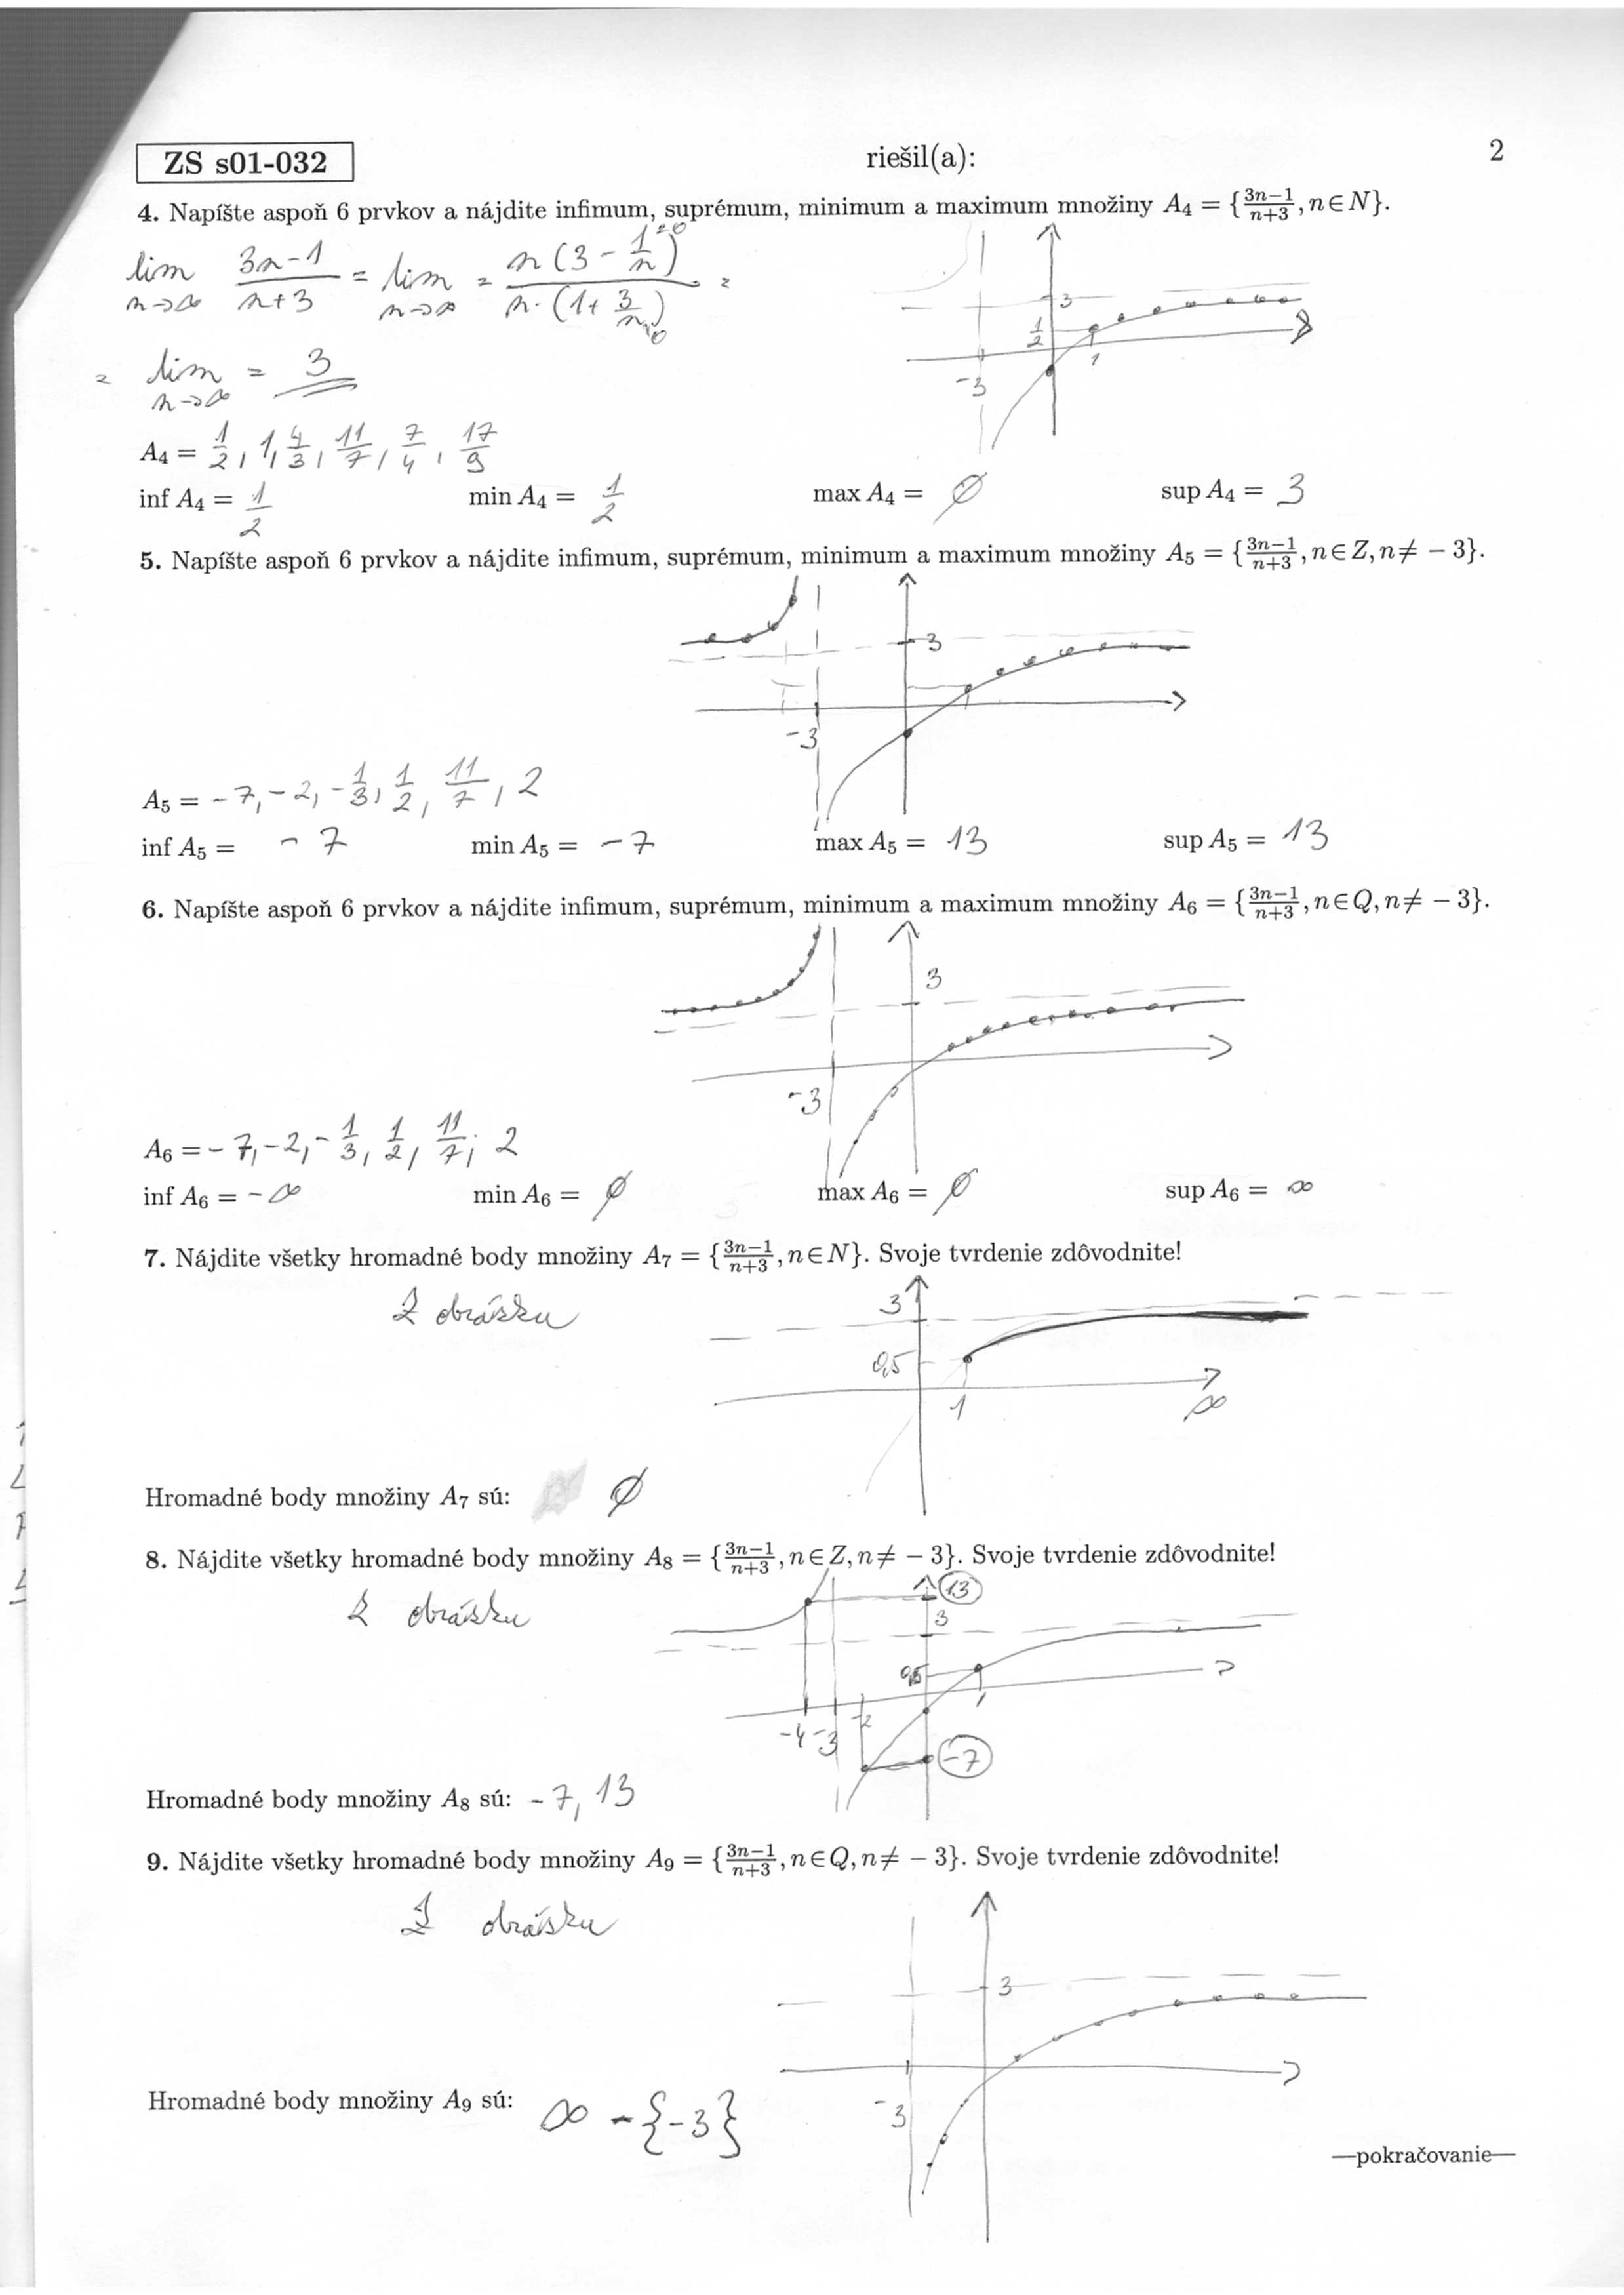 ZS s01-032 riešil(a): 2
4. Napíšte aspoň 6 prvkov a nájdite infimum, suprémum, minimum a maximum množiny A₄ = {(3n−1)/(n+3), n∈N}.
lim n→∞ (3n-1)/(n+3) = lim n→∞ = n(3 - 1/n →0)/(n·(1+ 3/n →0)) =
= lim n→∞ = 3
3
1/2
1
-3
A₄ = 1/2, 1, 4/3, 11/7, 7/4, 17/9
inf A₄ = 1/2 min A₄ = 1/2 max A₄ = ∅ sup A₄ = 3
5. Napíšte aspoň 6 prvkov a nájdite infimum, suprémum, minimum a maximum množiny A₅ = {(3n−1)/(n+3), n∈Z, n≠ −3}.
3
1
-3
A₅ = -7, -2, -1/3, 1/2, 11/7, 2
inf A₅ = -7 min A₅ = -7 max A₅ = 13 sup A₅ = 13
6. Napíšte aspoň 6 prvkov a nájdite infimum, suprémum, minimum a maximum množiny A₆ = {(3n−1)/(n+3), n∈Q, n≠ −3}.
3
-3
A₆ = -7, -2, -1/3, 1/2, 11/7, 2
inf A₆ = -∞ min A₆ = ∅ max A₆ = ∅ sup A₆ = ∞
7. Nájdite všetky hromadné body množiny A₇ = {(3n−1)/(n+3), n∈N}. Svoje tvrdenie zdôvodnite!
Z obrázku
3
0,5
1 ∞
Hromadné body množiny A₇ sú: ∅
8. Nájdite všetky hromadné body množiny A₈ = {(3n−1)/(n+3), n∈Z, n≠ −3}. Svoje tvrdenie zdôvodnite!
Z obrázku
13
3
0,5
1
-4 -3 -2
-7
Hromadné body množiny A₈ sú: -7, 13
9. Nájdite všetky hromadné body množiny A₉ = {(3n−1)/(n+3), n∈Q, n≠ −3}. Svoje tvrdenie zdôvodnite!
Z obrázku
3
-3
Hromadné body množiny A₉ sú: ∞ - {-3}
—pokračovanie—